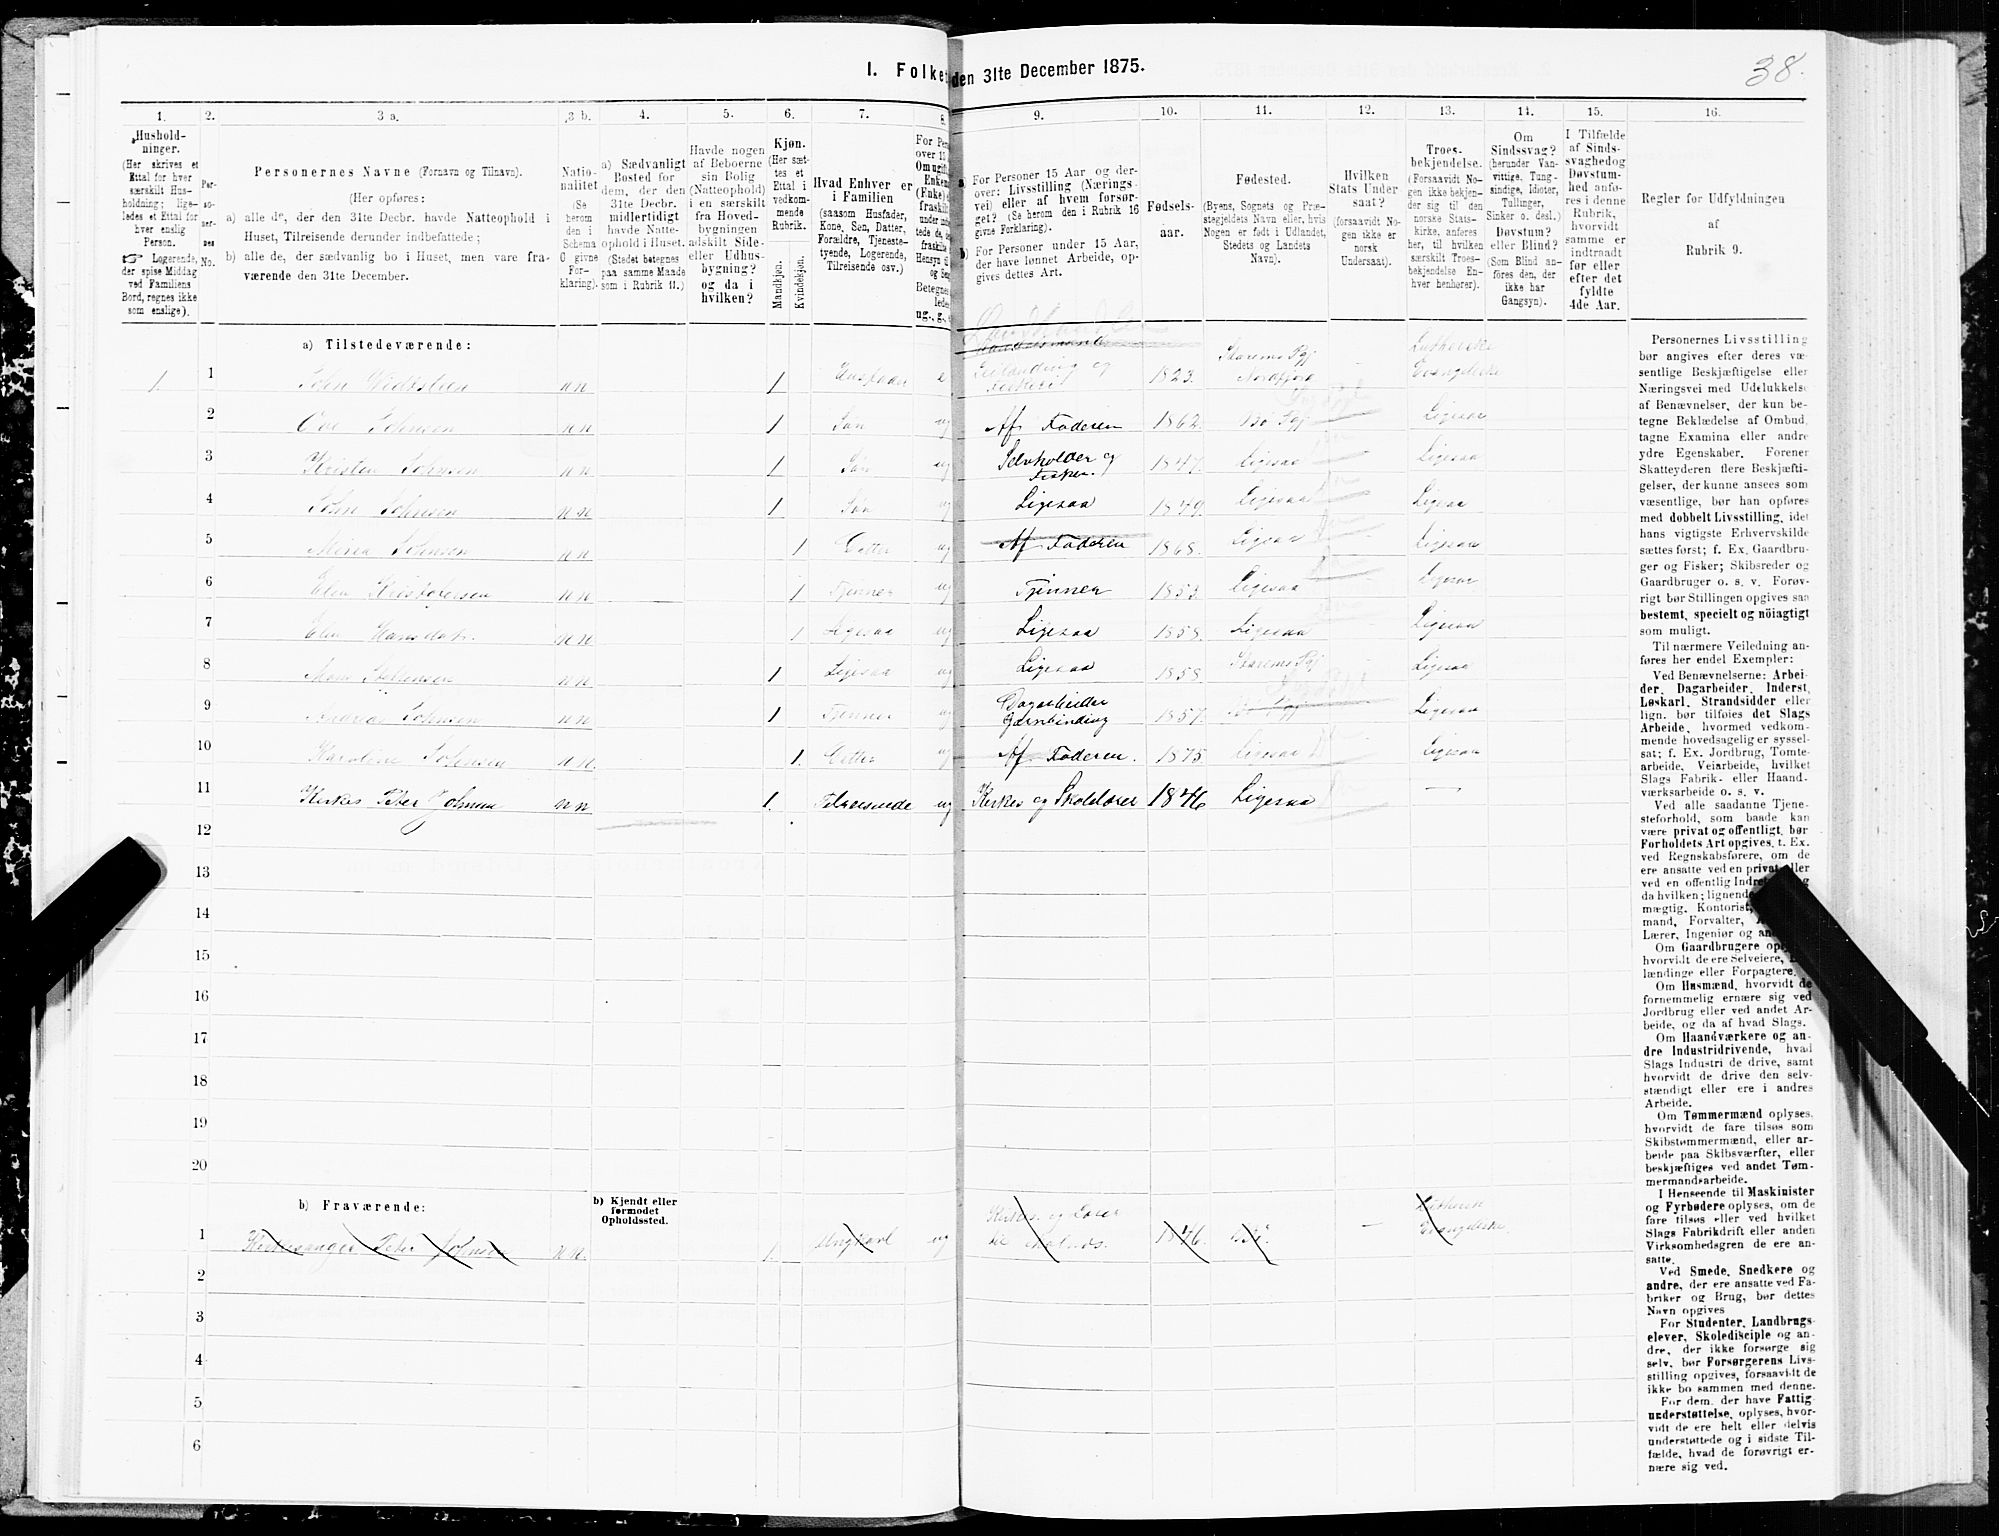 38.
I. Folket
den 31te December 1875.
1. 2. 3 a. 3 b. 4. 5. 6. 7. 8. 9. 10. 11. 12. 13. 14. 15. 16.
Hushold-
ninger.
(Her skrives et
Ettal for hver
særskilt Hus-
holdning; lige-
ledes et Ettal for
hver enslig
Person.
☞ Logerende,
der spise Middag
ved Familiens
Bord, regnes ikke
som enslige).
Per-
so-
ner-
nes
No.
Personernes Navne (Fornavn og Tilnavn).
(Her opføres:
a) alle de, der den 31te Decbr. havde Natteophold i
Huset, Tilreisende derunder indbefattede;
b) alle de, der sædvanlig bo i Huset, men vare fra-
værende den 31te December.
Natio-
nalitet
(Se
herom
den i
Schema
G givne
For-
klaring).
a) Sædvanligt
Bosted for
dem, der den
31te Decbr.
midlertidigt
havde Natte-
ophold i Huset.
(Stedet betegnes
paa samme Maade
som i Rubrik 11.)
Havde nogen
af Beboerne
sin Bolig
(Natteophold)
i en særskilt
fra Hoved-
bygningen
adskilt Side-
eller Udhus-
bygning?
og da i
hvilken?
Kjøn.
(Her sæt-
tes et
Ettal i
vedkom-
mende
Rubrik.
Mandkjøn.
Kvindekjøn.
Hvad Enhver er
i Familien
(saasom Husfader,
Kone, Søn, Datter,
Forældre, Tjeneste-
tyende, Logerende,
Tilreisende osv.)
For Pers
over 15
Om ugift
Enken
(Fuke)
fraskilt
under
tede da,
fraskilt
Hensyn til
og Se
Betegnes
lede
ug., g.,
a For Personer 15 Aar og der-
over: Livsstilling (Nærings-
vei) eller af hvem forsør-
get? (Se herom den i Rubrik 16
givne Forklaring).
b) For Personer under 15 Aar,
der have lønnet Arbeide, op-
gives dettes Art.
Fødsels-
aar.
Fødested.
(Byens, Sognets og Præ-
stegjeldets Navn eller, hvis
Nogen er født i Udlandet,
Stedets og Landets
Navn).
Hvilken
Stats Under
saat?
(forsaavidt No-
gen ikke er
norsk
Undersaat).
Troes-
bekjendelse.
(Forsaavidt No-
gen ikke bekjen-
der sig til den
norske Stats-
kirke, anføres
her, til hvilken
særskilt Troes-
bekjendelse En-
hver henhører).
Om
Sindssvag?
(herunder Van-
vittige, Tung-
sindige, Idioter,
Tullinger,
Sinker o. desl.)
Døvstum?
eller Blind?
(Som Blind an-
føres den, der
ikke har
Gangsyn).
I Tilfælde
af Sinds-
svaghedog
Døvstum-
hed anfø-
res i denne
Rubrik,
hvorvidt
samme er
indtraadt
før eller
efter det
fyldte
4de Aar.
Regler for Udfyldningen
af
Rubrik 9.
a) Tilstedeværende:
Landhandler
1 1 John n n 1 Husfader e og 1823. Nordfjord Lutherske Evangeliske
2 Johnsen n n 1 Søn ug Af Faderen 1862. Bø Pgj Ligesaa
3 Kristen Johnsen n n 1 Søn ug Selvholder og Fisker. 1847. Ligesaa Ligesaa
4 John Johnsen n n 1 Søn ug Ligesaa 1849. Ligesaa Ligesaa
5 Johnsen n n 1 Datter ug Af Faderen 1868. Ligesaa Ligesaa
6 n n 1 Tjener ug Tjener 1853. Ligesaa Ligesaa
7 Hansdatr. n n 1 Ligesaa ug Ligesaa 1858. Ligesaa Ligesaa
8 n n 1 Ligesaa ug Ligesaa 1858. Pgj Ligesaa
9 Andreas Johnsen n n 1 Tjener ug Dagarbeider Garnbinding 1857. Pgj Ligesaa
10 Karoline Johnsen n n. 1. Datter ug Af Faderen. 1875. Ligesaa Ligesaa
11 Kirkes Peter Johnsen n n 1. Tilreisende ug Kirkes og Skolelærer 1846 Ligesaa —
12
13
14
15
16
17
18
19
20
b) Fraværende:
b) Kjendt eller
formodet
Opholdssted.
1 Kirkesanger Peter Johnsen n n. 1. Ungkarl ug Kirkes. og Lærer 1846. — Lutherske Evangeliske.
2
3
4
5
6
Personernes Livsstilling
bør angives efter deres væ-
sentlige Beskjæftigelse eller
Næringsvei med Udelukkelse
af Benævnelser, der kun be-
tegne Beklædelse af Ombud,
tagne Examina eller andre
ydre Egenskaber. Forener
Skatteyderen flere Beskjæfti-
gelser, der kunne ansees som
væsentlige, bør han opføres
med dobbelt Livsstilling, idet
hans vigtigste Erhvervskilde
sættes først; f. Ex. Gaardbru-
ger og Fisker; Skibsreder og
Gaardbruger o. s. v. Forøv-
rigt bør Stillingen opgives saa
bestemt, specielt og nöiagtigt
som muligt.
Til nærmere Veiledning an-
føres her endel Exempler:
Ved Benævnelserne: Arbei-
der, Dagarbeider, Inderst,
Løskarl, Strandsidder eller
lign. bør tilføies det Slags
Arbeide, hvormed vedkom-
mende hovedsagelig er syssel-
sat; f. Ex. Jordbrug, Tomte-
arbeide, Veiarbeide, hvilket
Slags Fabrik- eller Haand-
værksarbeide o. s. v.
Ved alle saadanne Tjene-
steforhold, som baade kan
være privat og offentligt, bør
Forholdets Art opgives, t. Ex.
ved Regnskabsførere, om de
ere ansatte ved en privat eller
ved en offentlig Indret
da hvilken; lignende
mægtig, Kontorist,
mand, Forvalter,
Lærer, Ingeniør og an
Om Gaardbrugere op
hvorvidt de ere Selveiere,
lændinge eller Forpagtere.
Om Husmænd, hvorvidt de
fornemmelig ernære sig ved
Jordbrug eller ved andet Ar-
beide, og da af hvad Slags.
Om Haandværkere og an-
dre Industridrivende, hvad
Slags Industri de drive, samt
hvorvidt de drive den selv-
stændigt eller ere i andres
Arbeide.
Om Tømmermænd oplyses,
hvorvidt de fare tilsøs som
Skibstømmermænd, eller ar-
beide paa Skibsværfter, eller
beskjæftiges ved andet Tøm-
mermandsarbeide.
I Henseende til Maskinister
og Fyrbødere oplyses, om de
fare tilsøs eller ved hvilket
Slags Fabrikdrift eller anden
Virksomhedsgren de ere an-
satte.
Ved Smede, Snedkere og
andre, der ere ansatte ved Fa-
briker og Brug, bør dettes
Navn opgives
For Studenter, Landbrugs-
elever, Skoledisciple og an-
dre, der ikke forsørge sig
selv, bør Forsørgerens Livs-
stilling opgives, forsaavidt de
ikke bo sammen med denne.
For dem, der have Fattig-
understøttelse, oplyses, hvor-
vidt de ere helt eller delvis
understøttede og i sidste Til-
fælde, hvad de forøvrigt er-
nære sig ved.